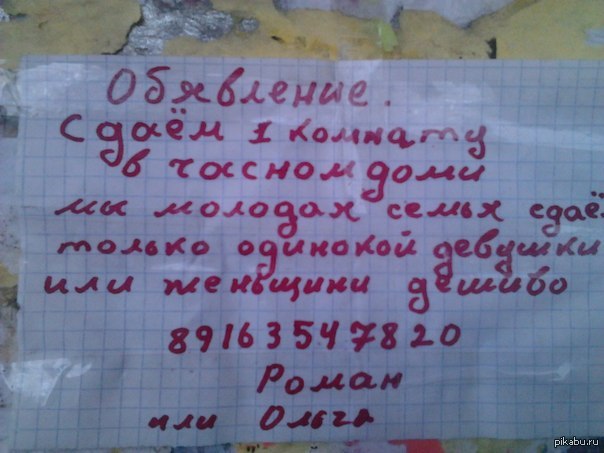 Обявление.
Сдаём 1 комнату
в часном доми
мы молодах семьх сдаё
только одинокой девушки
или женьщини дешиво
89163547820
Роман
или Ольга
pikabu.ru